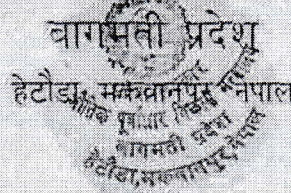 बागमती प्रदेश
हेटौडा, मकवानपुर, नेपाल
पूर्वाधार विकास
बागमती प्रदेश
हेटौडा, मकवानपुर, नेपाल